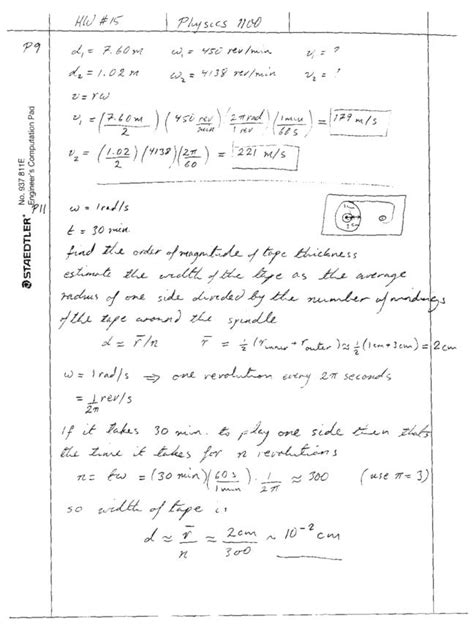 HW #15 Physics 1100
P9 d₁ = 7.60m ω₁ = 450 rev/min v₁ = ?
d₂ = 1.02m ω₂ = 4138 rev/min v₂ = ?
v = rω
v₁ = (7.60m/2)(450 rev/min)(2π rad/1 rev)(1min/60s) = 179 m/s
v₂ = (1.02/2)(4138)(2π/60) = 221 m/s
No. 937 811E
Engineer's Computation Pad
STAEDTLER
P11 ω = 1 rad/s
t = 30 min
find the order of magnitude of tape thickness
estimate the width of the tape as the average
radius of one side divided by the number of windings
of the tape around the spindle
d = r̄/n r̄ = ½(r inner + r outer) ≈ ½(1cm + 3cm) = 2cm
ω = 1 rad/s ⇒ one revolution every 2π seconds
= 1/2π rev/s
If it takes 30 min. to play one side then thats
the time it takes for n revolutions
n = tω = (30 min)(60s/1min) · 1/2π ≈ 300 (use π = 3)
so width of tape is
d ≈ r̄/n ≈ 2cm/300 ~ 10⁻² cm